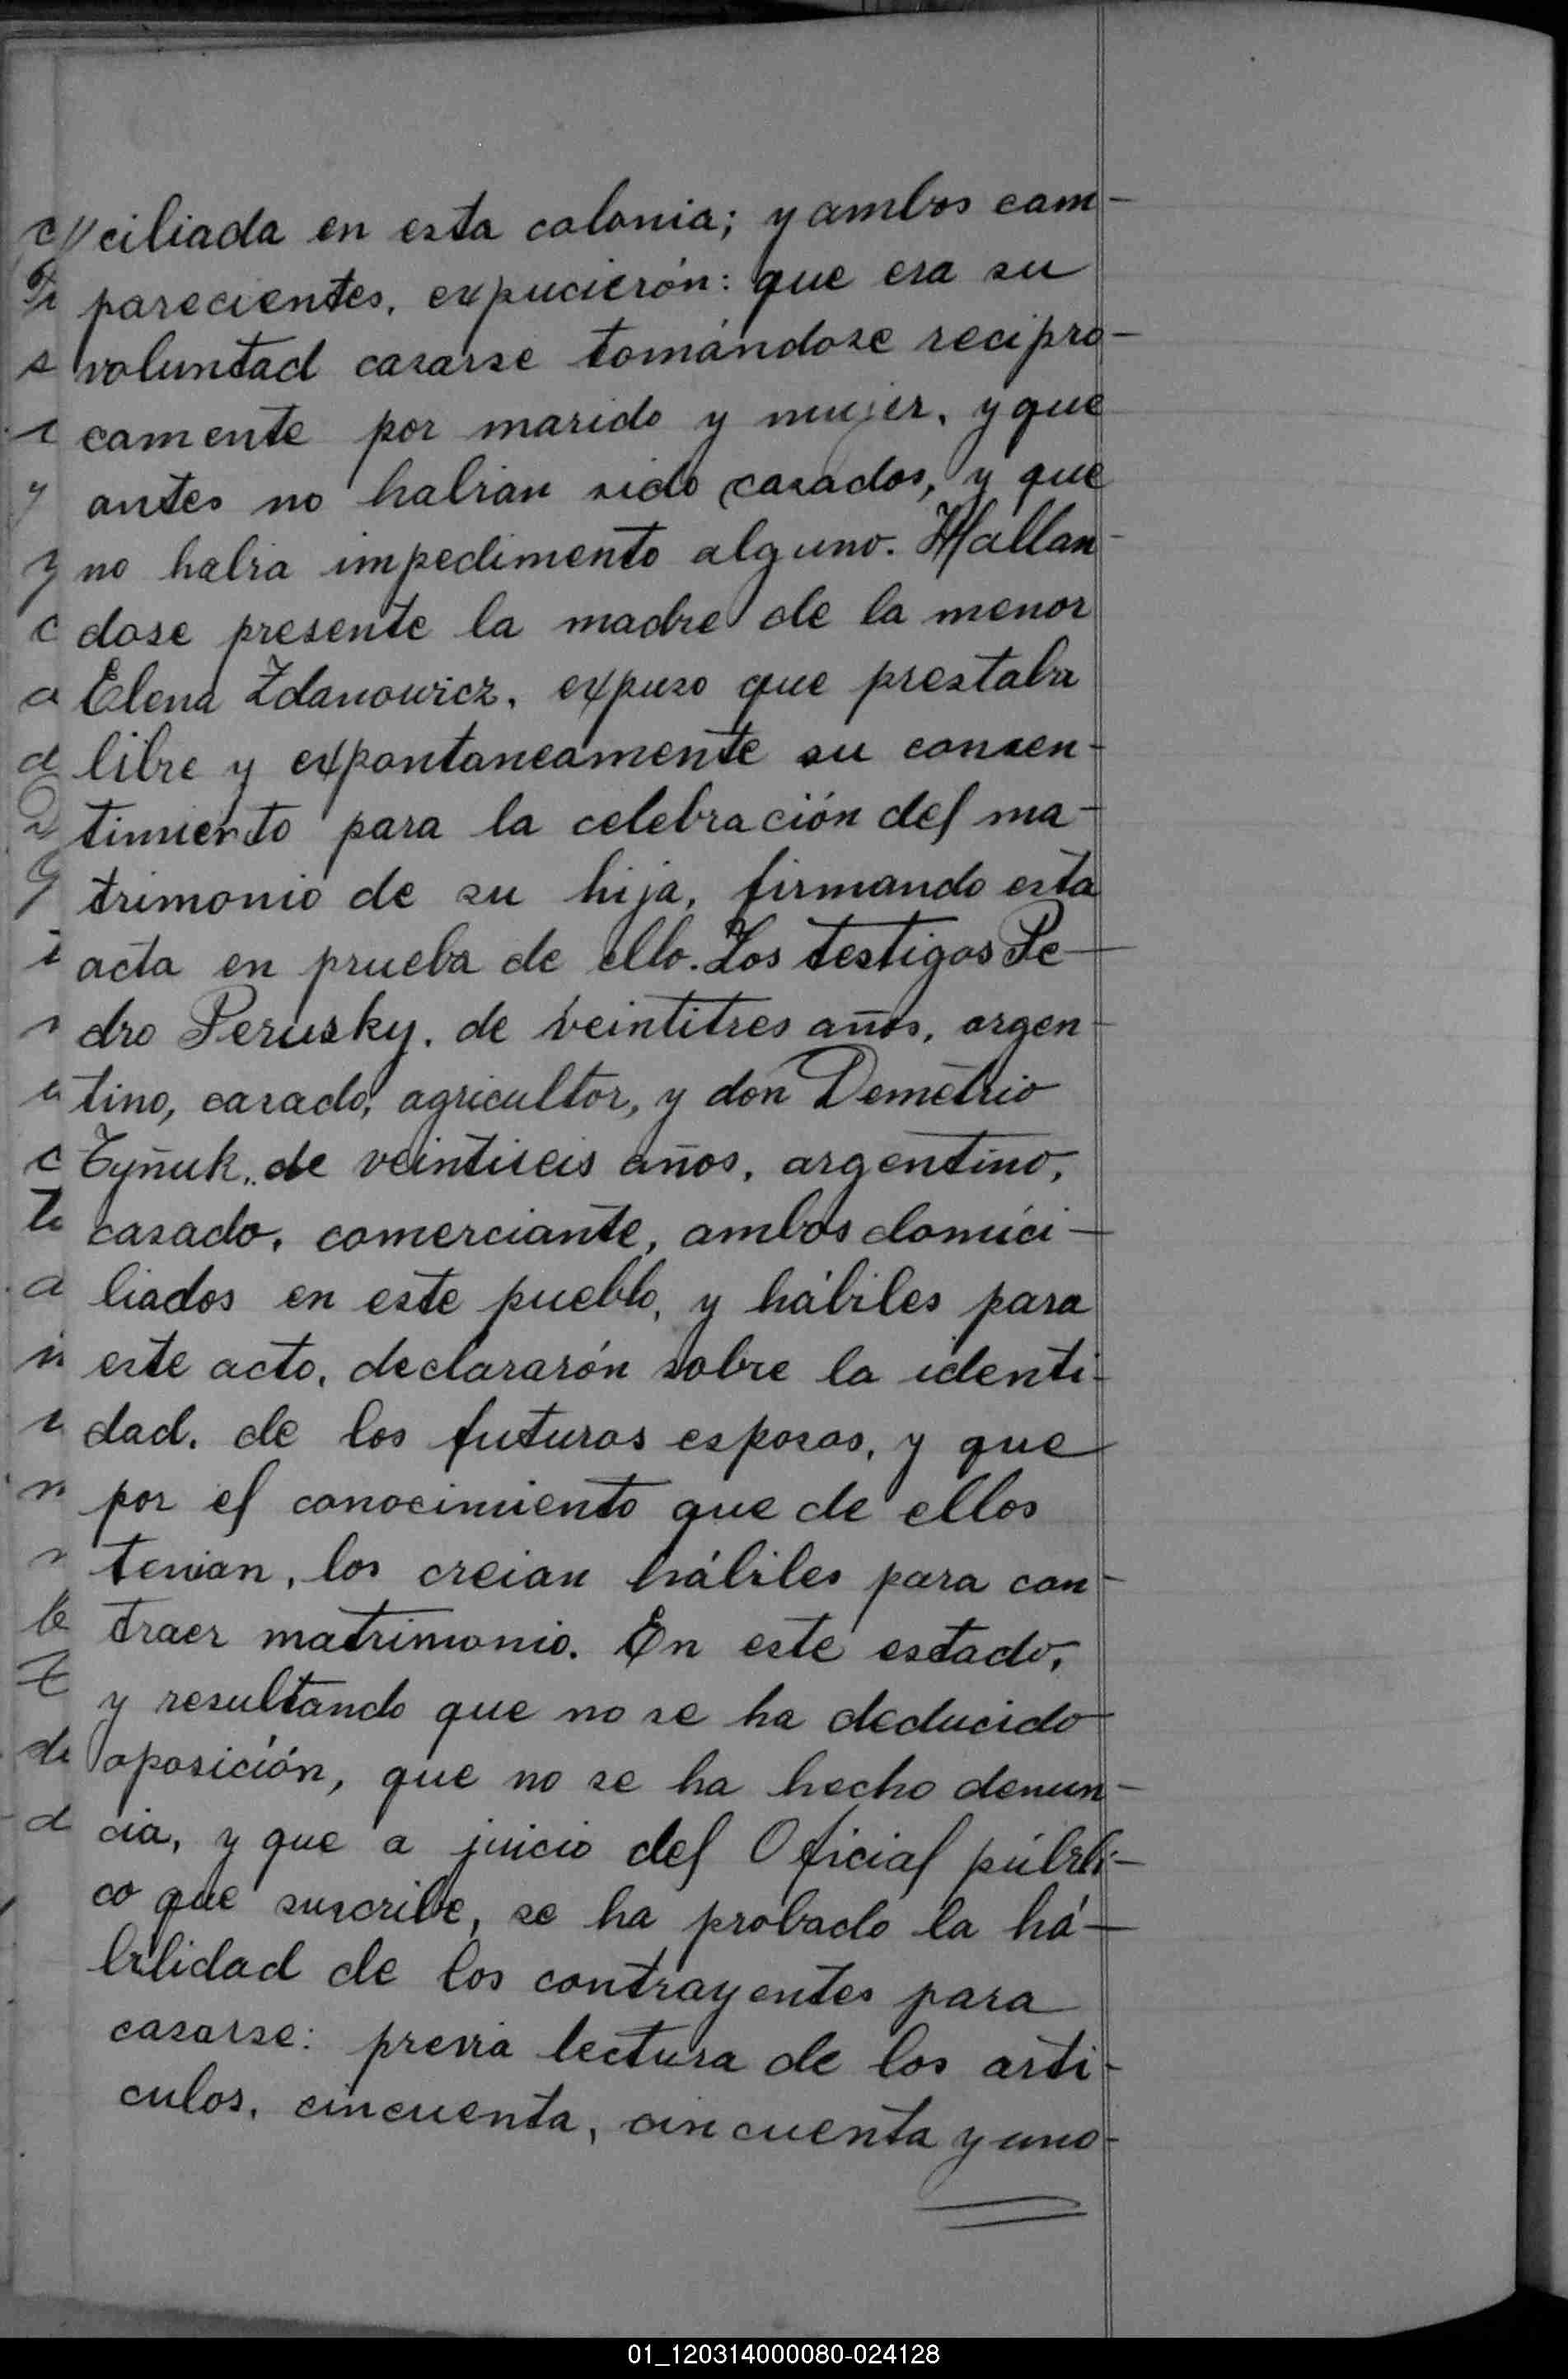 ciliada en esta colonia; y ambos com-
parecientes, expucierón: que era su
voluntad casarse tomándose recipro-
camente por marido y mujer, y que
antes no habian sido casados, y que
no habia impedimento alguno. Hallan-
dose presente la madre de la menor
Elena Zdanowicz, expuso que prestaba
libre y expontaneamente su consen-
timiento para la celebración del ma-
trimonio de su hija, firmando esta
acta en prueba de ello. Los testigos Pe-
dro Perusky, de veintitres años, argen-
tino, casado, agricultor, y don Demétrio
Tyñuk, de veintiseis años, argentino,
casado, comerciante, ambos domici-
liados en este pueblo, y hábiles para
este acto, declararón sobre la identi-
dad, de los futuros esposos, y que
por el conocimiento que de ellos
tenian, los creian hábiles para con-
traer matrimonio. En este estado,
y resultando que no se ha deducido
oposición, que no se ha hecho denun-
cia, y que a juicio del Oficial públi-
co que suscribe, se ha probado la há-
bilidad de los contrayentes para
casarse: previa lectura de los arti-
culos, cincuenta, cincuenta y uno-
01_120314000080-024128